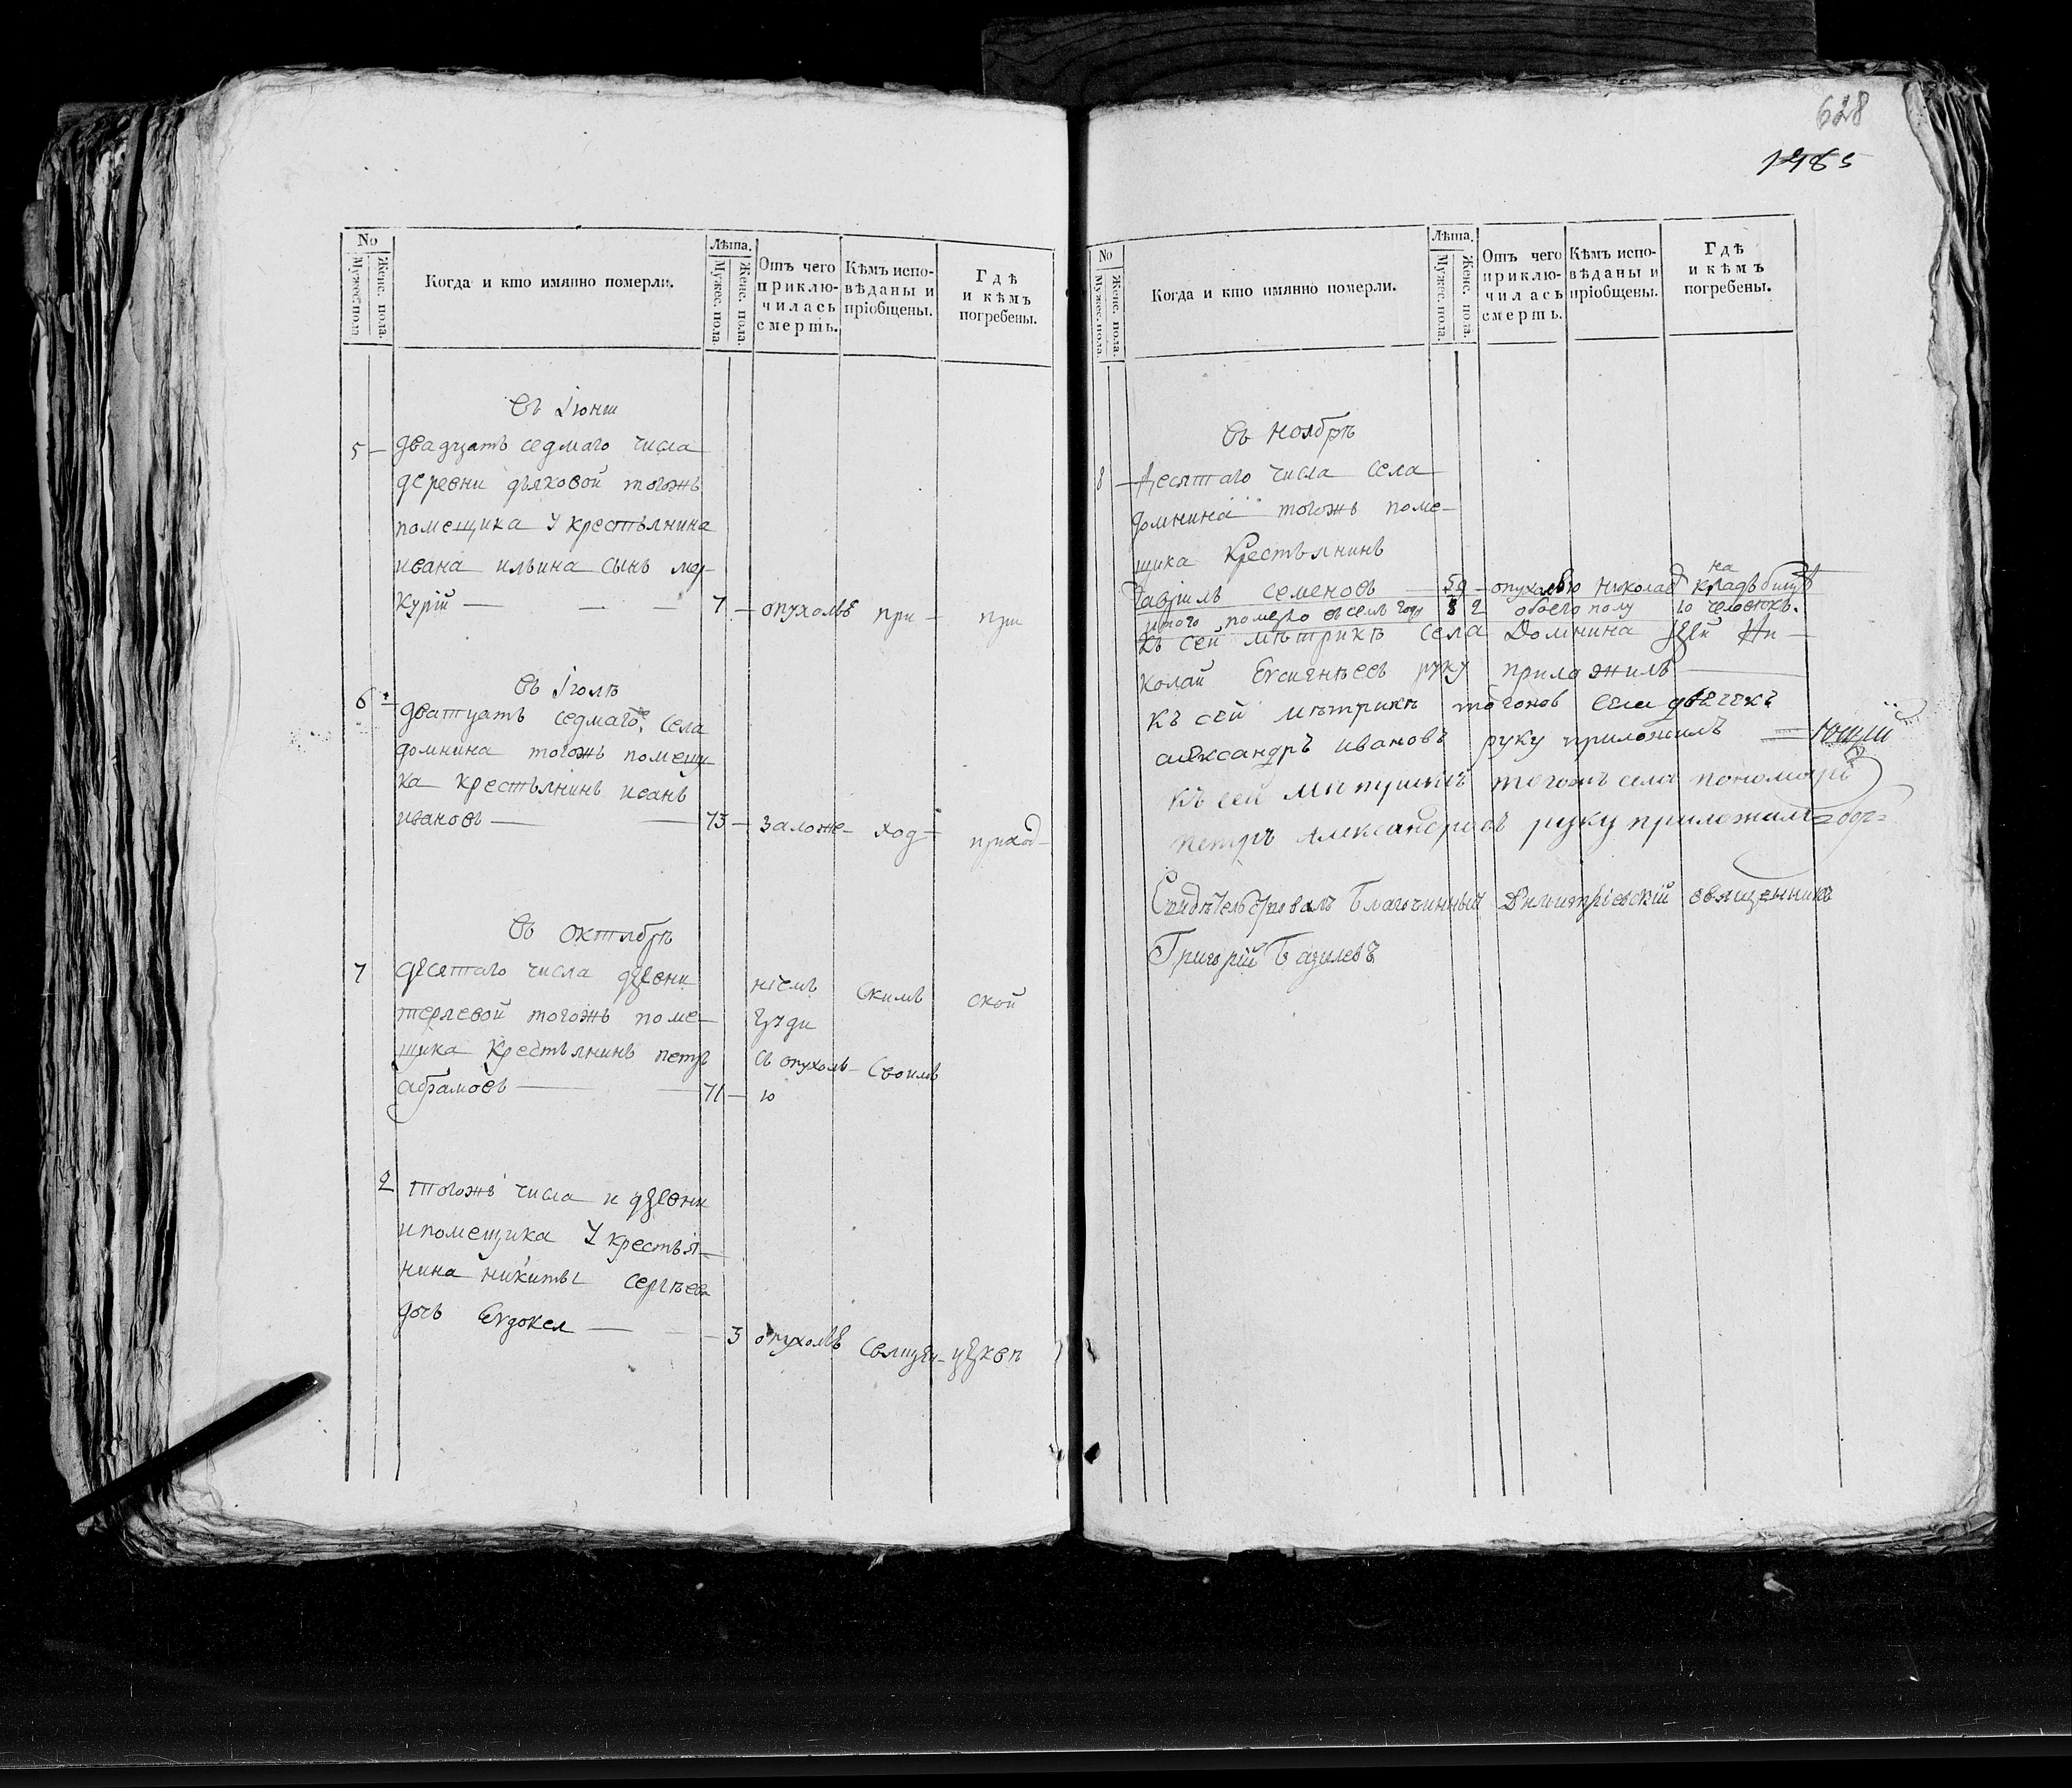 No
Мужес. пола
Женс. пола.
Когда и кто имянно померли.
Лѣта.
Мужес. пола.
Женс. пола.
Отъ чего приклю-
чилась смерть.
Кѣмъ испо-
вѣданы и
прiобщены.
Гдѣ
и кѣмъ
погребены.
въ Iюни
5 — двадцать седмаго числа
деревни дьяковой тогожъ
помещика У крестьянина
ивана ильина сынъ мер-
курiй — — — 7 — опухолью при — при
въ Iюлѣ
6 — дватцать седмаго села
домнина тогожъ помещи
ка крестьянинъ иванъ
ивановъ — — 75 — заложе- ход- приход-
въ октябрѣ
7 десятаго числа дрвни нiемъ скимъ ской
терлевой тогожъ поме- груди
щика крестьянинъ петръ съ опухоль- своимъ
абрамовъ — — 71 — ю
2 тогожъ числа и дрвни
и помещика У крестья-
нина никиты сергѣева
дочь Евдокея — — — 3 опухолью священ- церкви
628
1485
No
Мужес. пола.
Женс. пола.
Когда и кто имянно померли.
Лѣта.
Мужес. пола.
Женс. пола.
Отъ чего
приклю-
чилась
смерть.
Кѣмъ испо-
вѣданы и
прiобщены.
Гдѣ
и кѣмъ
погребены.
въ ноябрѣ
8 — Десятаго числа села
домнина тогожъ поме-
щика крестьянинъ
на
Гаврилъ семеновъ — 59 — опухолью николае кладъбище
итого померло въ семъ году 8 2 обоего полу 10 человекъ.
Къ сей мѣтрикѣ села Домнина Iерей Ни-
колай Евсигнѣевъ руку приложилъ
къ сей мѣтрики тогожъ села дьячекъ
александръ ивановъ руку приложилъ — ющiй
къ сей тогожъ села пономарь
петръ Александровъ руку приложилъ
Свидѣтельствовалъ Благочинный Димитрiевскiй священникъ
Григорiй Базилевъ